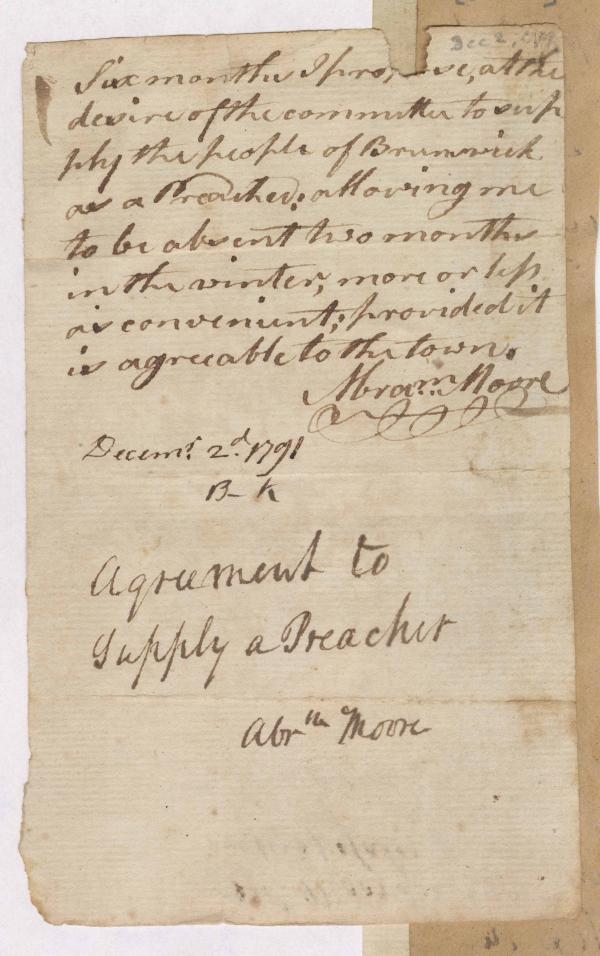 Dec 2, 1791
Six months I propose, at the
desire of the committee to sup
ply the people of Brunswick
as a Preacher; allowing me
to be absent two months
in the winter, more or less
as convenient; provided it
is agreeable to the town.
Abram. Moore
Decemr. 2d. 1791
B- K
Agreement to
Supply a Preacher
Abrm Moore